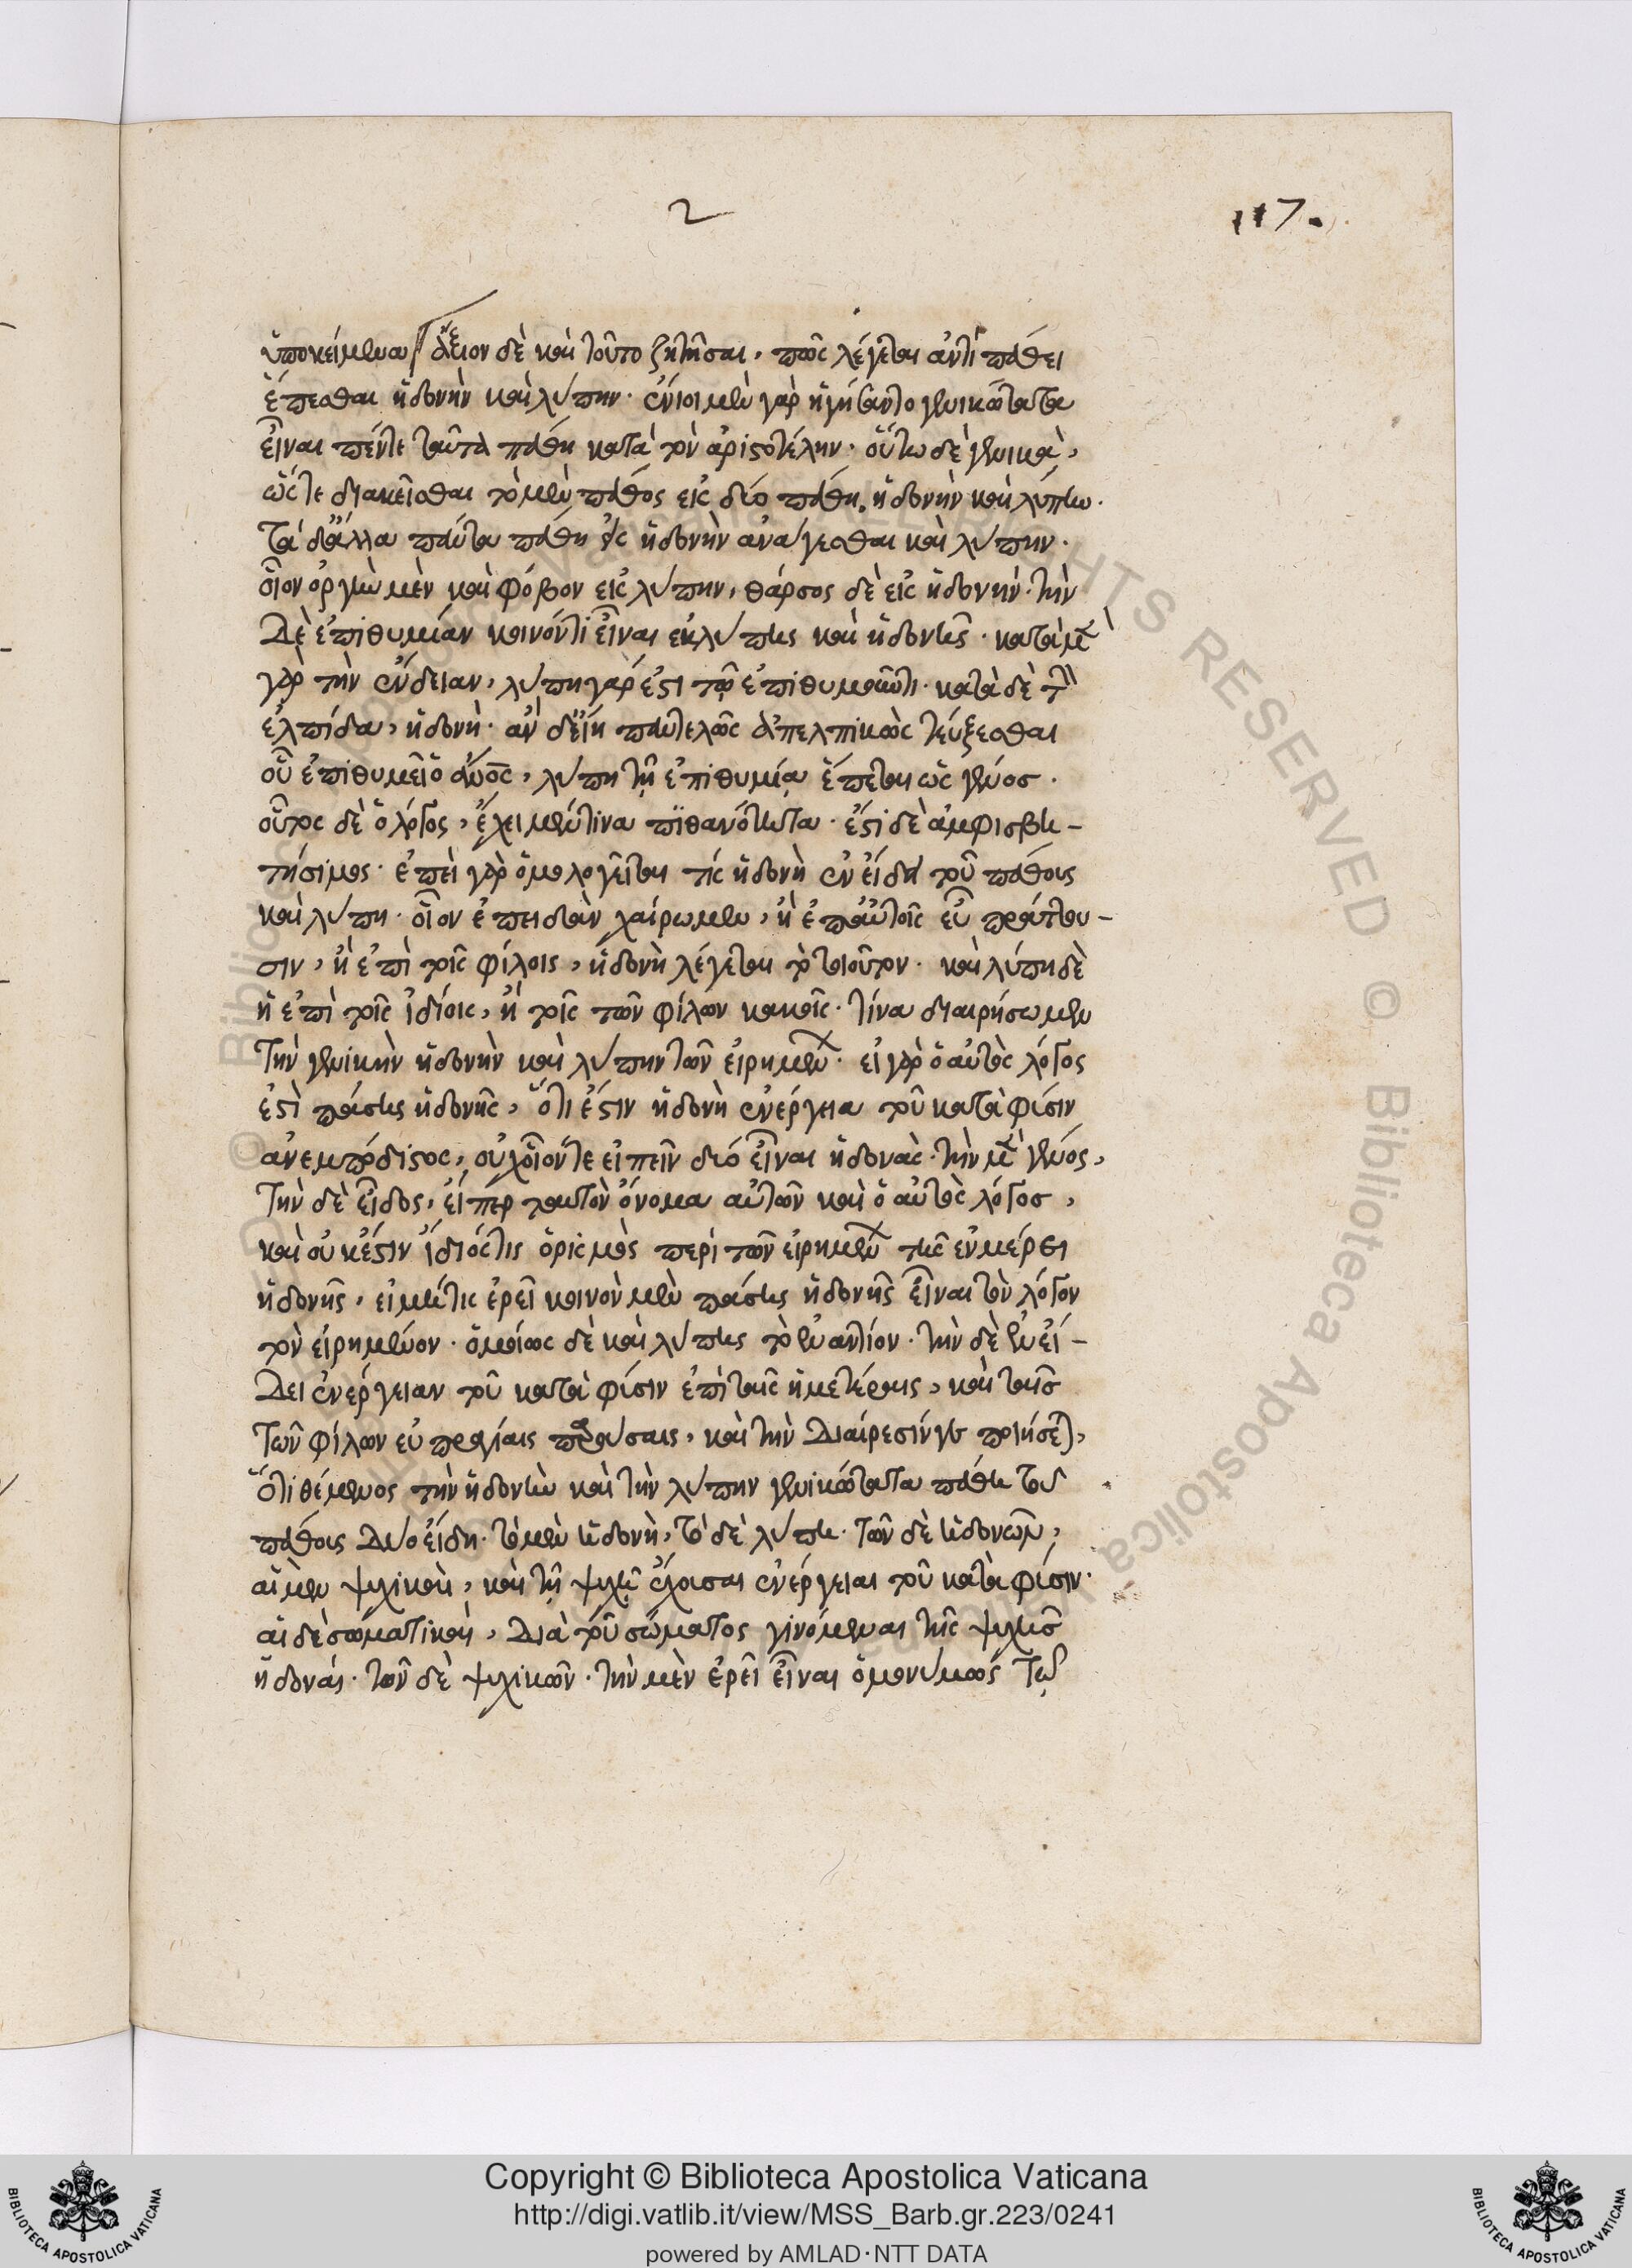 2
117.
ὑποκείμενα ἄξιον δὲ καὶ τοῦτο ζητῆσαι, πῶς λέγεται ἀντὶ πάθει
ἕπεσθαι ἡδονὴν καὶ λύπην· ἔνιοι μὲν γὰρ ἡγήσαντο γενικώτατα
εἶναι πέντε ταῦτα πάθη κατὰ τὸν ἀριστοτέλην· οὕτω δὲ γενικὰ,
ὥστε διακεῖσθαι τὸ μὲν πάθος εἰς δύο πάθη, ἡδονὴν καὶ λύπην.
τὰ δ' ἄλλα πάντα πάθη εἰς ἡδονὴν ἀνάγεσθαι καὶ λύπην.
οἷον ὀργὴν μὲν καὶ φόβον εἰς λύπην, θάρσος δὲ εἰς ἡδονήν· τὴν
δὲ ἐπιθυμίαν κοινόν τι εἶναι ἐκ λύπης καὶ ἡδονῆς· κατὰ μὲν
γὰρ τὴν ἔνδειαν, λύπη γάρ ἐστι τῷ ἐπιθυμοῦντι· κατὰ δὲ τὴν
ἐλπίδα, ἡδονή· ἂν δ' εἴη παντελῶς ἀπελπικὼς τεύξεσθαι
οὗ ἐπιθυμεῖ ὁ ἄνος, λύπη τῇ ἐπιθυμίᾳ ἕπεται ὡς γένος.
οὗτος δὲ ὁ λόγος, ἔχει μέν τινα πιθανότητα· ἔστι δὲ ἀμφισβη-
τήσιμος· ἐπεὶ γὰρ ὁμολογεῖται τίς ἡδονὴ ἐν εἴδει τοῦ πάθους
καὶ λύπη· οἷον ἐπειδὰν χαίρωμεν, ἢ ἐπ' αὐτοῖς εὖ πράττου-
σιν, ἢ ἐπὶ τοῖς φίλοις, ἡδονὴ λέγεται τὸ τοιοῦτον· καὶ λύπη δὲ
ἢ ἐπὶ τοῖς ἰδίοις, ἢ τοῖς τῶν φίλων κακοῖς· τίνα διαιρήσωμεν
τὴν γενικὴν ἡδονὴν καὶ λύπην τῶν εἰρημένων· εἰ γὰρ ὁ αὐτὸς λόγος
ἐστὶ πάσης ἡδονῆς, ὅτι ἐστὶν ἡδονὴ ἐνέργεια τοῦ κατὰ φύσιν
ἀνεμπόδιστος, οὐχ οἷόν τε εἰπεῖν δύο εἶναι ἡδονὰς· τὴν μὲν γένος,
τὴν δὲ εἶδος, εἴπερ ταυτὸν ὄνομα αὐτῶν καὶ ὁ αὐτὸς λόγος,
καὶ οὐκ ἔστιν ἴδιός τις ὁρισμὸς περὶ τῶν εἰρημένων τῆς ἐν μέρει
ἡδονῆς, εἰ μή τις ἐρεῖ κοινὸν μὲν πάσης ἡδονῆς εἶναι τὸν λόγον
τὸν εἰρημένον· ὁμοίως δὲ καὶ λύπης τὸ ἐναντίον· τὴν δὲ ἐν εἴ-
δει ἐνέργειαν τοῦ κατὰ φύσιν ἐπὶ ταῖς ἡμετέραις, καὶ ταῖς
τῶν φίλων εὐπραγίαις παρούσαις, καὶ τὴν διαίρεσιν οὕτω ποιήσεται,
ὅτι θέμενος τὴν ἡδονὴν καὶ τὴν λύπην γενικώτατα πάθη τοῦ
πάθους δύο εἴδη· τὸ μὲν ἡδονὴ, τὸ δὲ λύπη· τῶν δὲ ἡδονῶν,
αἱ μὲν ψυχικαὶ, καὶ τῇ ψυχῇ ἔχουσαι ἐνέργειαι τοῦ κατὰ φύσιν·
αἱ δὲ σωματικαὶ, διὰ τοῦ σώματος γινόμεναι τῆς ψυχῆς
ἡδοναί· τῶν δὲ ψυχικῶν· τὴν μὲν ἐρεῖ εἶναι ὁμωνύμως τῷ
Copyright © Biblioteca Apostolica Vaticana
http://digi.vatlib.it/view/MSS_Barb.gr.223/0241
powered by AMLAD·NTT DATA